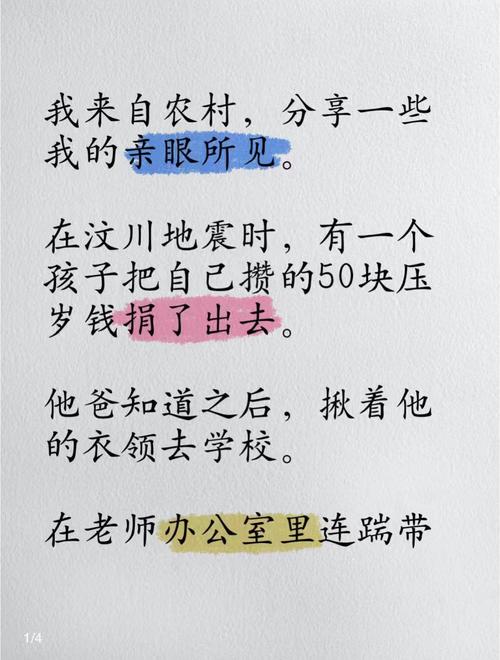 我来自农村，分享一些
我的亲眼所见。
在汶川地震时，有一个
孩子把自己攒的50块压
岁钱捐了出去。
他爸知道之后，揪着他
的衣领去学校。
在老师办公室里连踹带
1/4